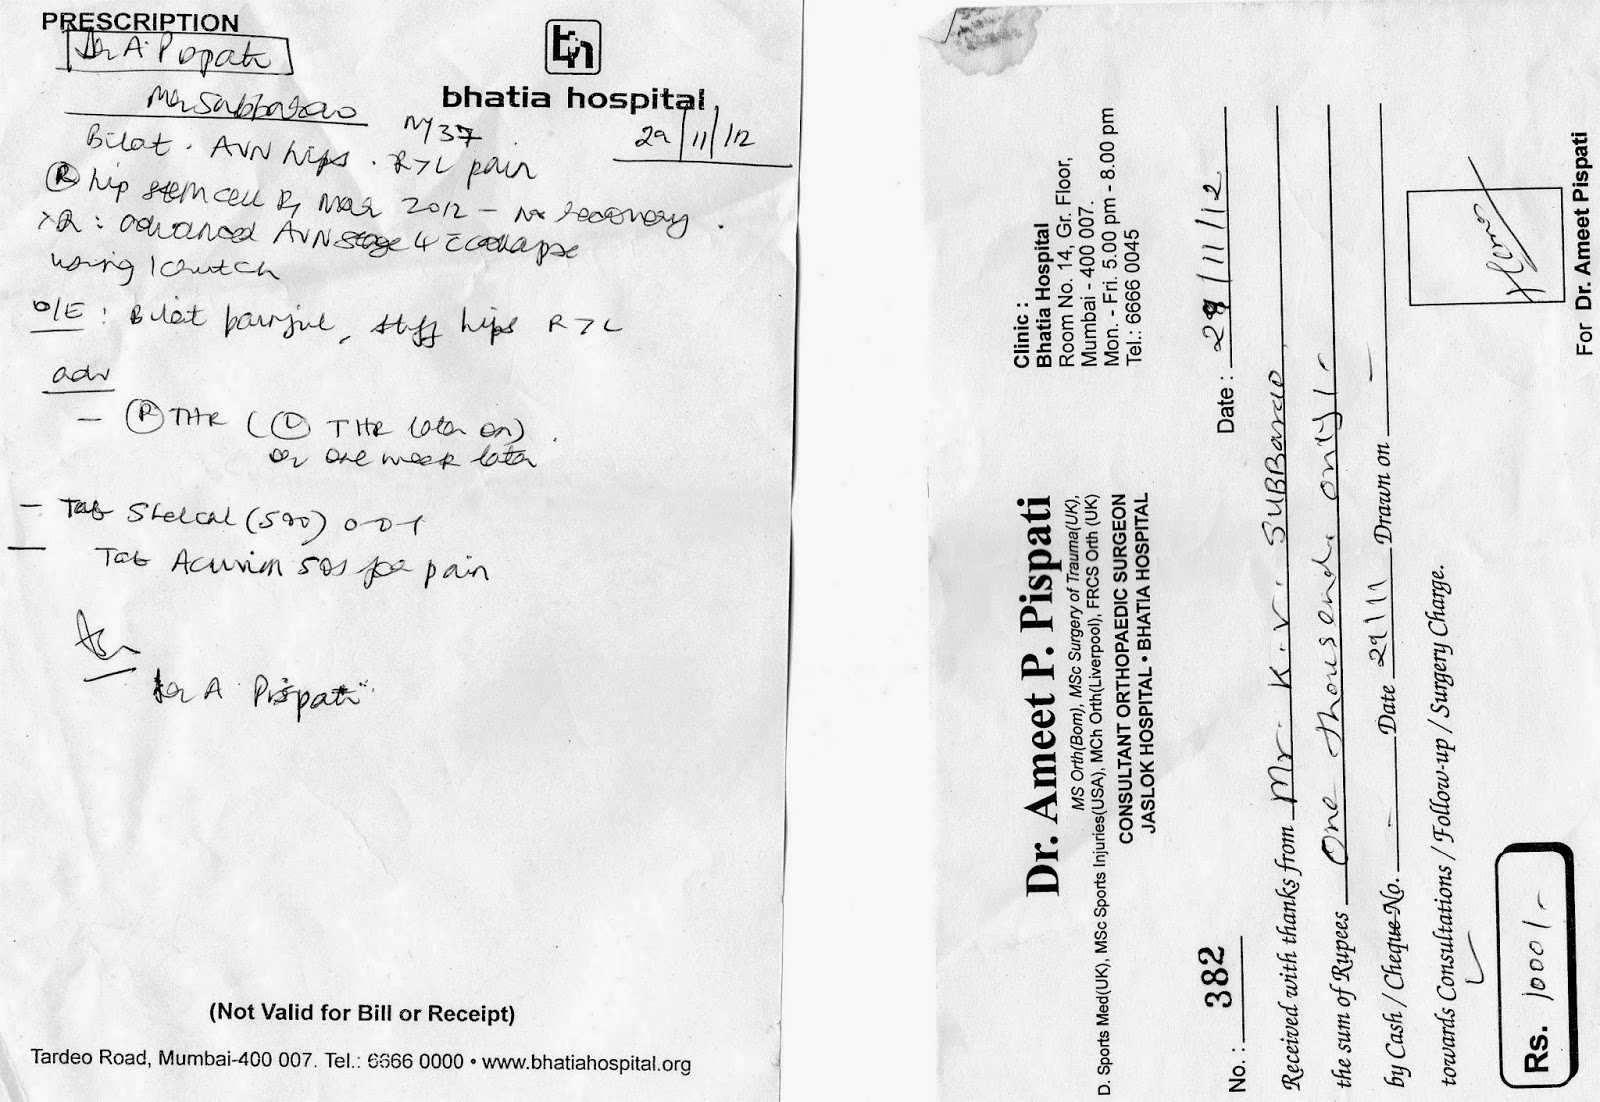 PRESCRIPTION
Dr A. Pispati
bhatia hospital
Mr Subbarao
M/37
29/11/12
Bilat. AVN hips. R>L pain
(R) hip stem cell Rx Mar 2012 - no recovery.
XR: advanced AVN stage 4 c collapse
using 1 crutch
O/E: Bilat painful, stiff hips R>L
adv
- (R) THR ( (L) THR later on).
or one week later
- Tab Shelcal (500) 0-0-1
- Tab SOS for pain
Dr A Pispati
(Not Valid for Bill or Receipt)
Tardeo Road, Mumbai-400 007. Tel.: 6666 0000 • www.bhatiahospital.org
Dr. Ameet P. Pispati
MS Orth(Bom), MSc Surgery of Trauma(UK),
D. Sports Med(UK), MSc Sports Injuries(USA), MCh Orth(Liverpool), FRCS Orth (UK)
CONSULTANT ORTHOPAEDIC SURGEON
JASLOK HOSPITAL • BHATIA HOSPITAL
Clinic :
Bhatia Hospital
Room No. 14, Gr. Floor,
Mumbai - 400 007.
Mon. - Fri. 5.00 pm - 8.00 pm
Tel.: 6666 0045
No. : 382
Date : 29/11/12
Received with thanks from Mr. K. V. SUBBarao
the sum of Rupees One thousand only/-
by Cash / Cheque No. - Date 29/11 Drawn on -
towards Consultations / Follow-up / Surgery Charge.
Rs. 1000/-
For Dr. Ameet Pispati